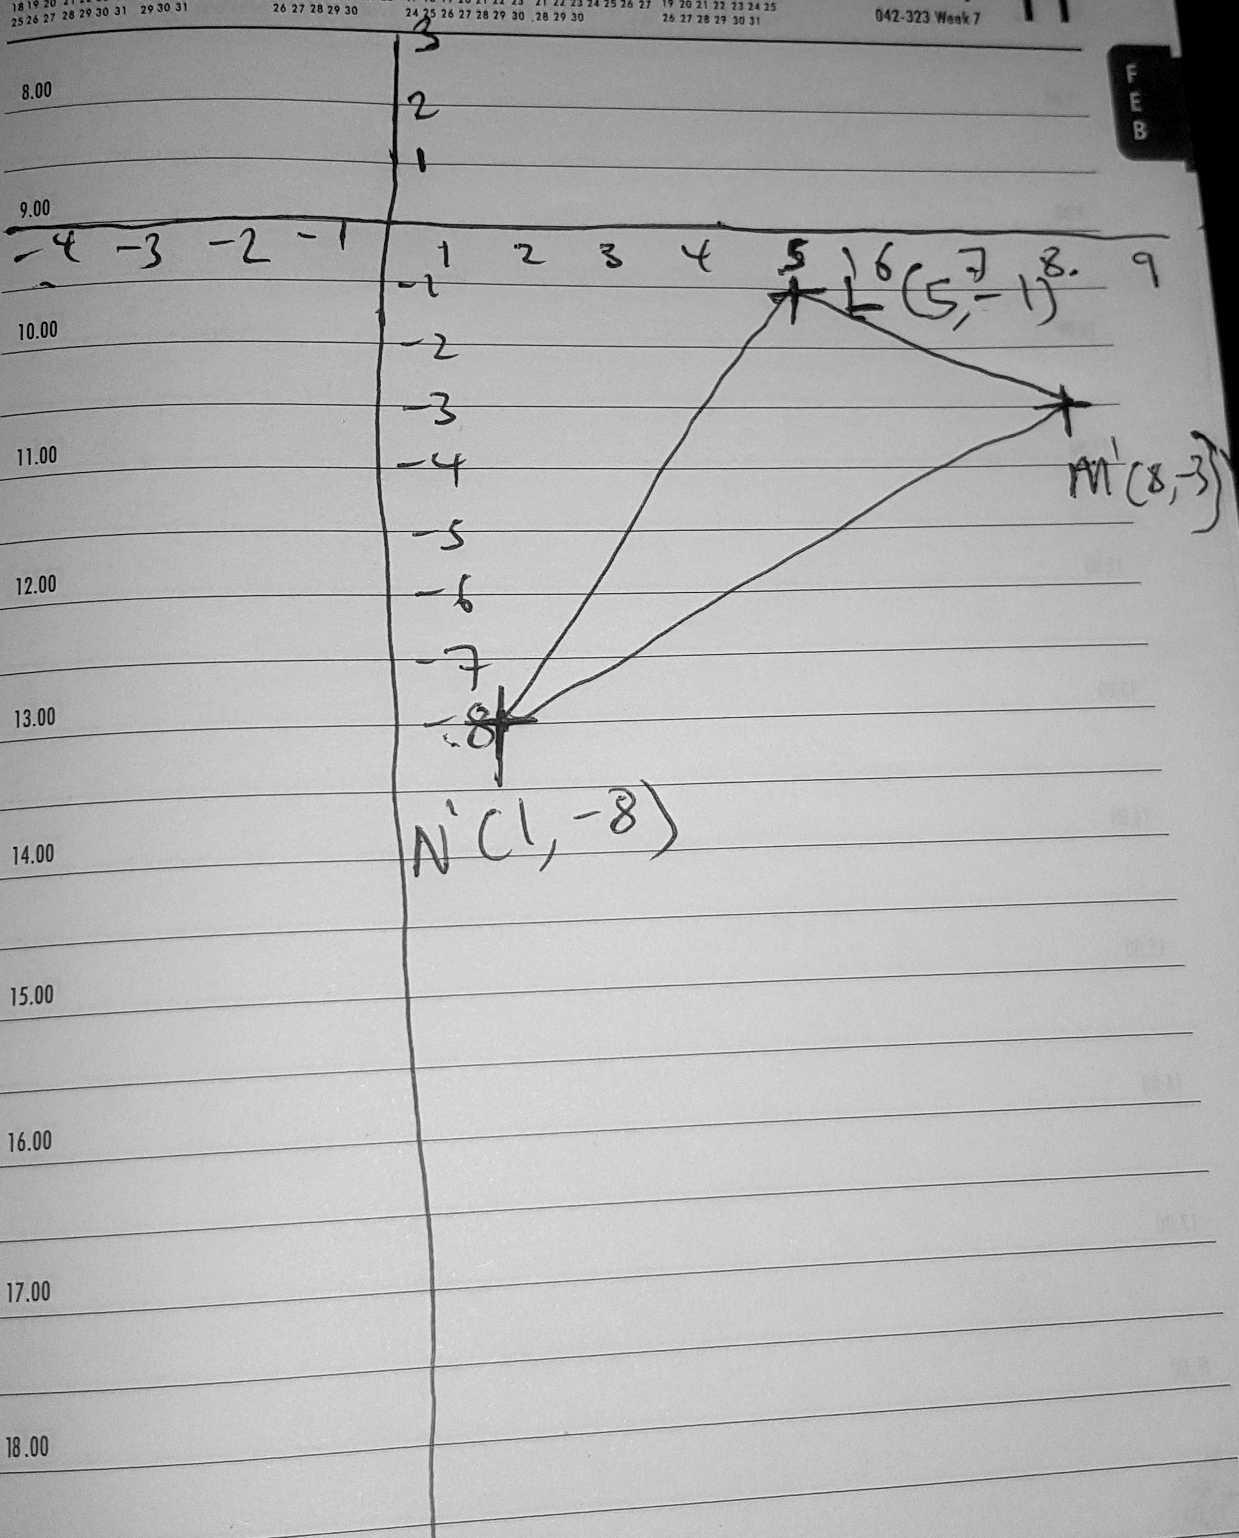 18 19 20
25 26 27 28 29 30 31 29 30 31 26 27 28 29 30 24 25 26 27 28 29 30 28 29 30 26 27 28 29 30 31
21 22 23 24 25 26 27 19 20 21 22 23 24 25
042-323 Week 7
11
FEB
3
8.00
2
1
9.00
-4 -3 -2 -1 1 2 3 4 5 6 7 8 9
-1
L'(5,-1)
10.00
-2
-3
11.00
-4
M'(8,-3)
-5
12.00
-6
-7
13.00
-8
N'(1,-8)
14.00
15.00
16.00
17.00
18.00